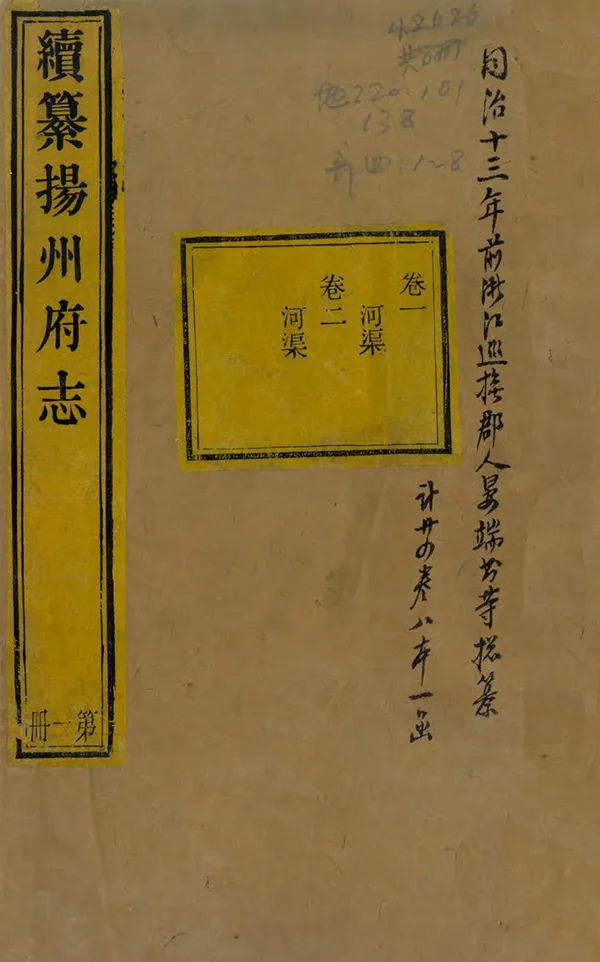 續纂揚州府志
第一冊
卷一
河渠
卷二
河渠
同治十三年前浙江巡撫郡人晏端书等總纂
计廿四卷八本一函
4.2626
共8册
地220.101
138
1~8